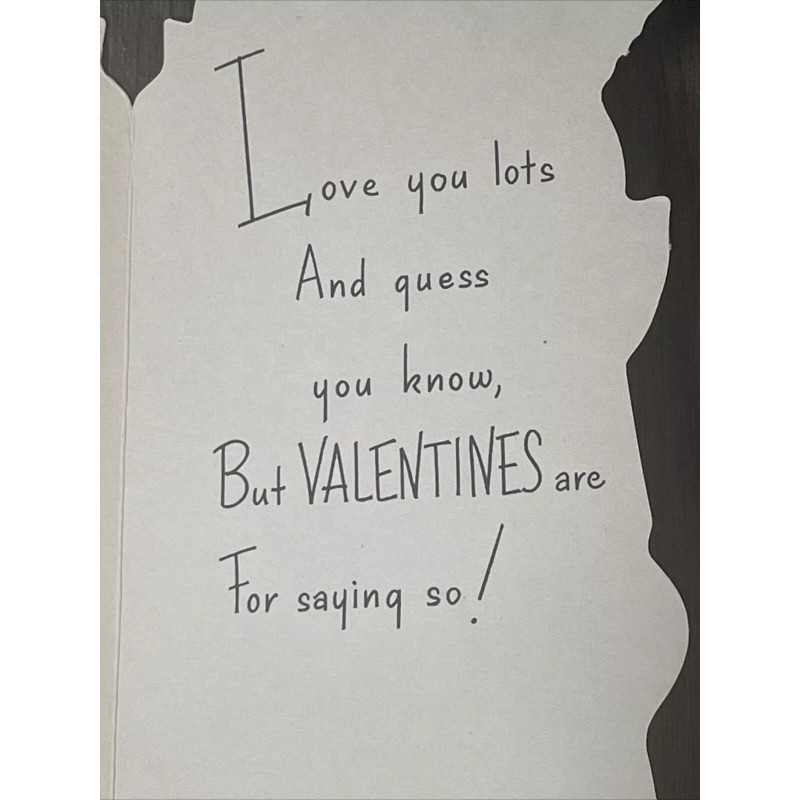 Love you lots
And guess
you know,
But VALENTINES are
For saying so!